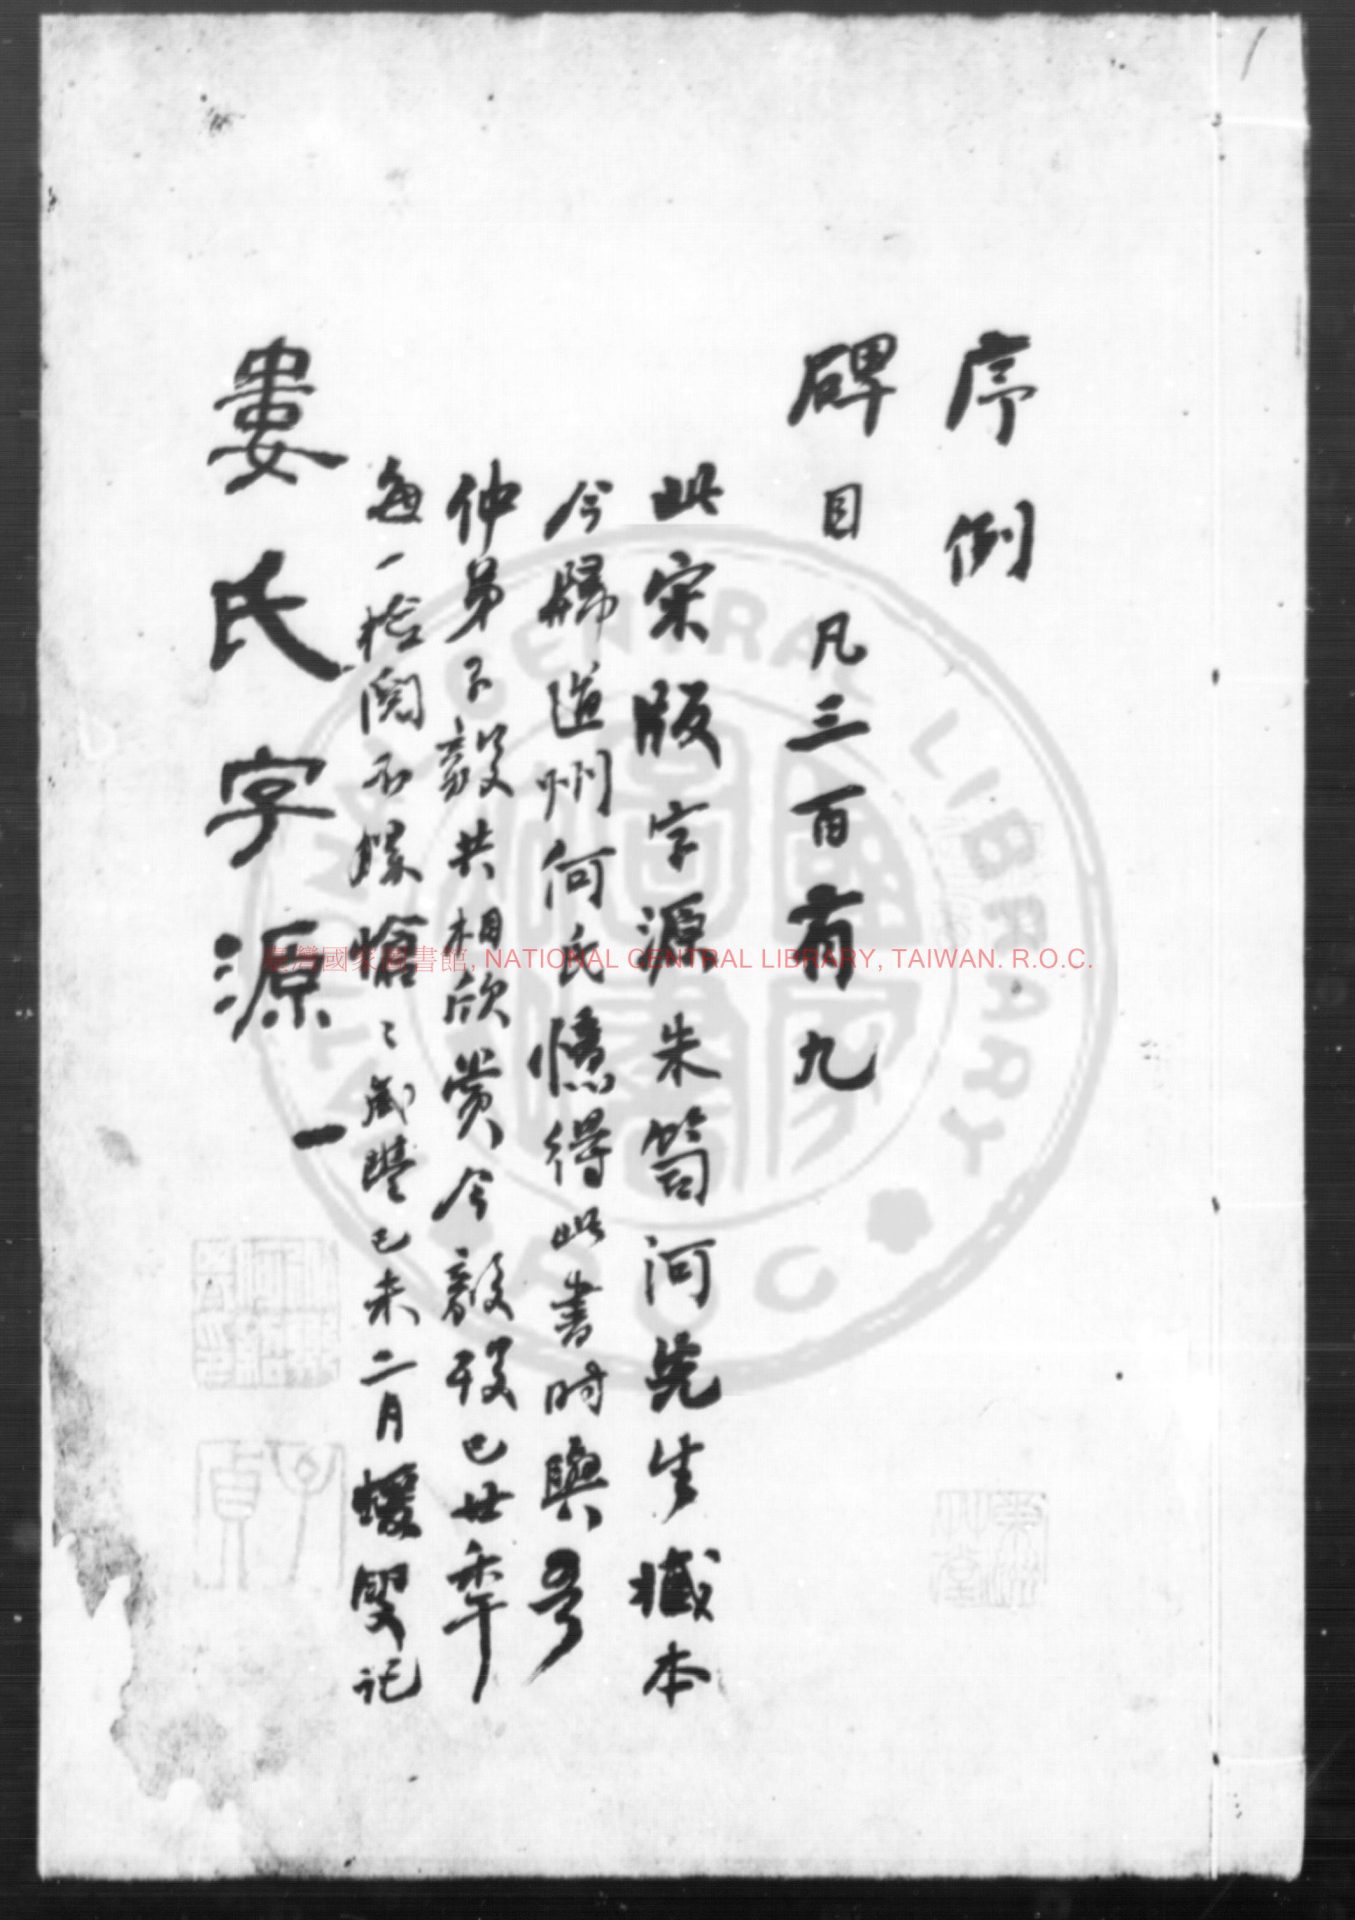 序例
碑目凡三百有九
此宋版字源朱笥河先生臧本
今歸道州何氏憶得此書時與吾
仲弟子毅共相欣賞今毅歿已廿年
每一捡閱不勝愴〻咸豐己未二月蝯叟記
婁氏字源一
臺灣國家圖書館, NATIONAL CENTRAL LIBRARY, TAIWAN. R.O.C.
NATIONAL CENTRAL LIBRARY
R O C